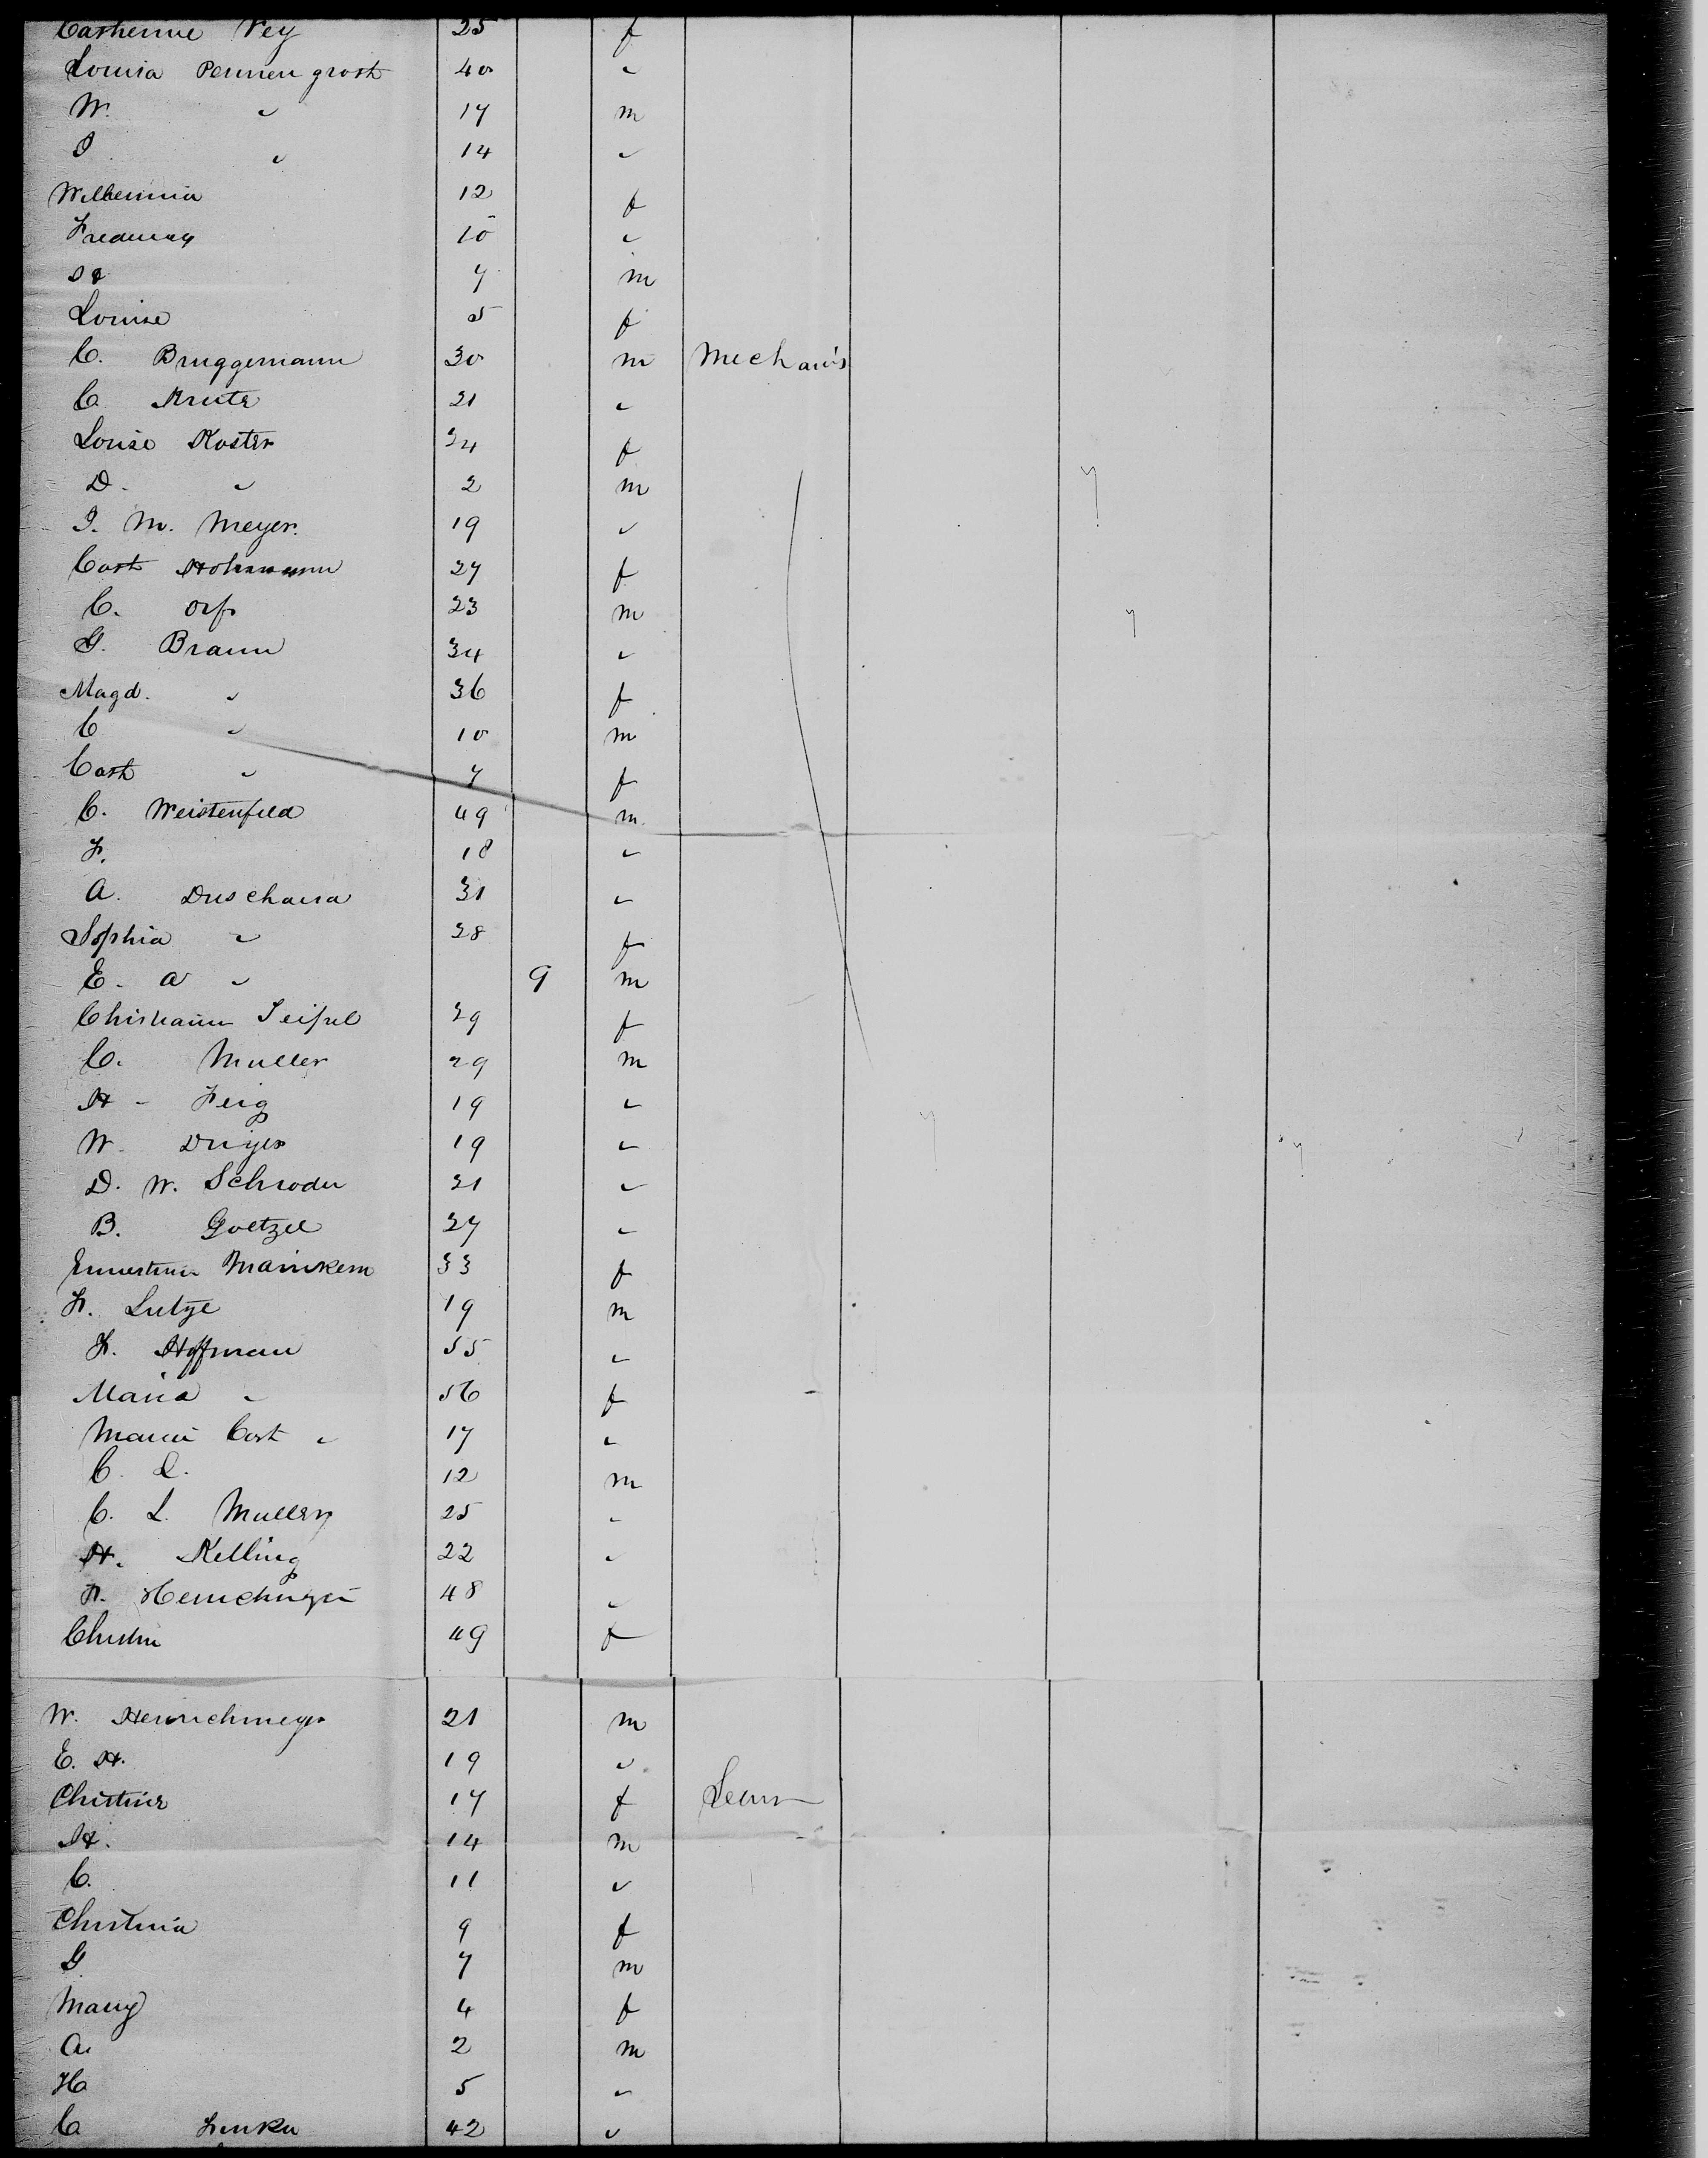 Catherine Vey 25 f
Louisa Pennengroth 40 "
W. " 17 m
I " 14 "
Wilhelmina 12 f
10 "
H 7 m
Louise 5 f
C. Bruggemann 30 m Mechanis
C. Krute 21 "
Louise Koster 34 f
D. " 2 m
I. M. Meyer. 19 "
Cath 27 f
C. Orf 23 m
G. Braun 34 "
Magd. " 36 f
C " 10 m
Cath " 7 f
C. Weistenfeld 49 m
F. 18 "
A. 31 "
Sophia " 28 f
E. A " 9 m
Seipel 29 f
C. Muller 29 m
H - Feig 19 "
W. 19 "
D. W. Schroder 21 "
B. Goetzel 27 "
33 f
F. Lutze 19 m
F. Hoffman 55 "
Maria " 56 f
Cath " 17 "
C. L. 12 m
C. L. Muller 25 "
H. Kelling 22 "
48 "
49 f
W. Henrichmeyer 21 m
E. H. 19 "
Christine 17 f
H. 14 m
C. 11 "
Christina 9 f
G 7 m
Mary 4 f
A. 2 m
H 5 "
C 42 "